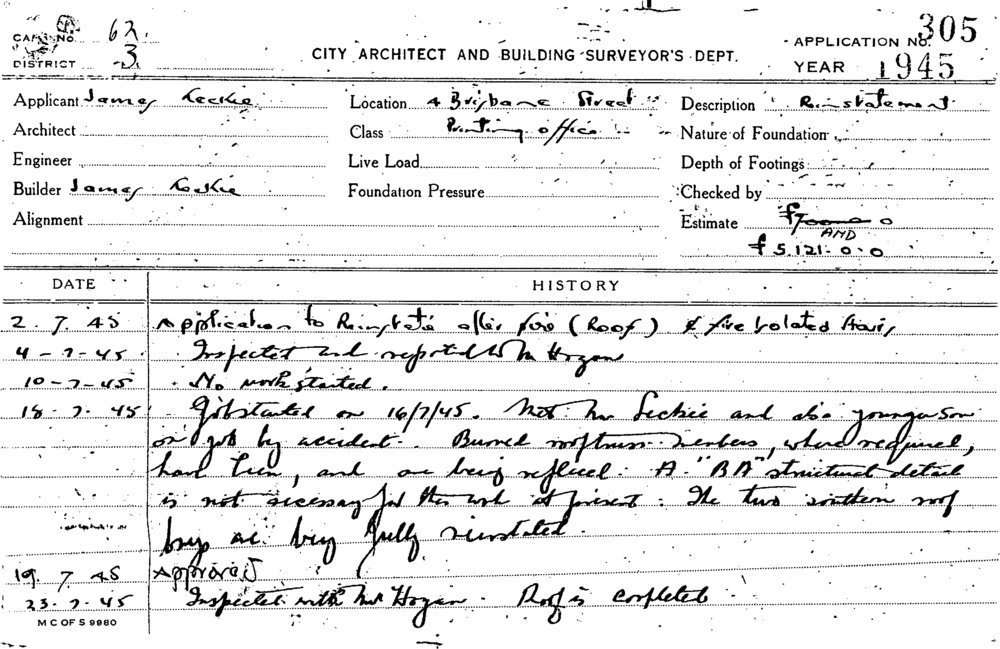 CARD No. 62.
DISTRICT 3
CITY ARCHITECT AND BUILDING SURVEYOR'S DEPT.
APPLICATION No. 305
YEAR 1945
Applicant James Leckie
Location 4 Brisbane Street
Description Reinstatement
Architect
Class Printing office
Nature of Foundation
Engineer
Live Load
Depth of Footings
Builder James Leckie
Foundation Pressure
Checked by
Alignment
Estimate £7000 0
AND
£5.121.0.0
DATE HISTORY
2.7.45 Application to Reinstate after fire (Roof) & fire isolated stairs
4-7-45 Inspected and reported to Mr Hogan
10-7-45 No work started.
18.7.45 Job started on 16/7/45. Met Mr Leckie and also younger son
on job by accident. Burned roof truss members, where required,
have been, and are being replaced. A "BA" structural detail
is not necessary for this work at present. The two southern roof
bays are being fully reinstated.
19.7.45 Approved
23-7-45 Inspected with Mr Hogan. Roof is completed
M C OF S 9980